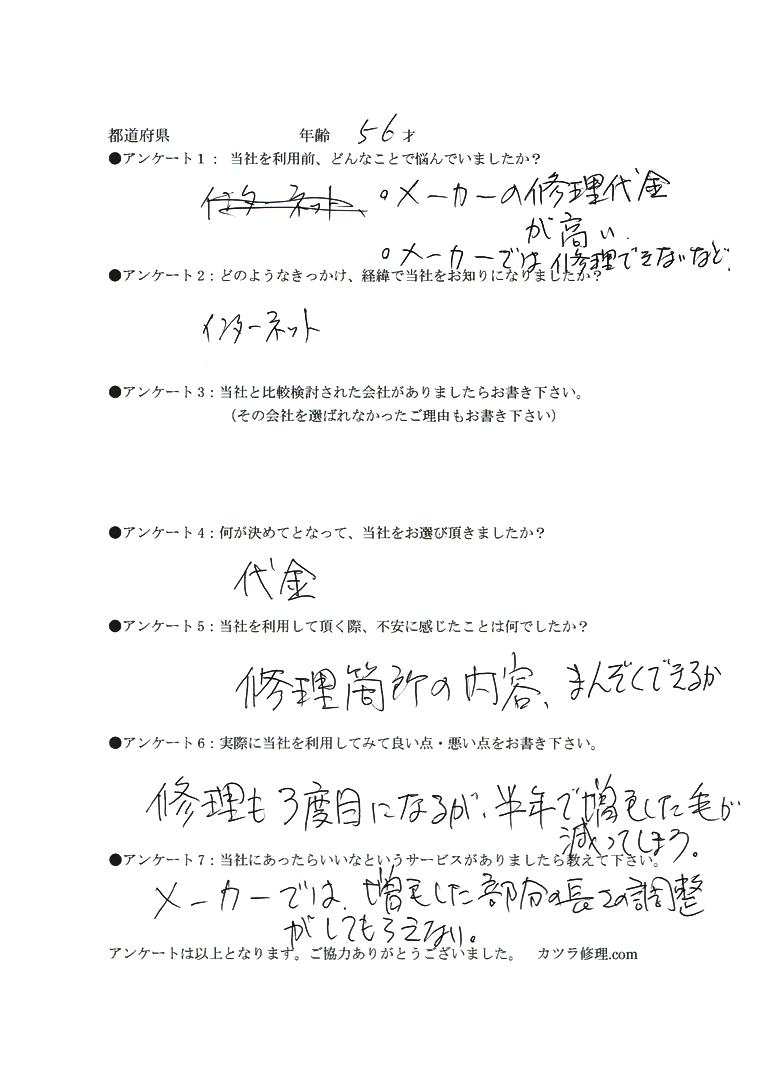 都道府県　年齢　56才
●アンケート1： 当社を利用前、どんなことで悩んでいましたか？
インターネット ○メーカーの修理代金
が高い.
○メーカーでは修理できないなど.
●アンケート2：どのようなきっかけ、経緯で当社をお知りになりましたか？
インターネット
●アンケート3：当社と比較検討された会社がありましたらお書き下さい。
（その会社を選ばれなかったご理由もお書き下さい）
●アンケート4：何が決めてとなって、当社をお選び頂きましたか？
代金
●アンケート5：当社を利用して頂く際、不安に感じたことは何でしたか？
修理箇所の内容、まんぞくできるか
●アンケート6：実際に当社を利用してみて良い点・悪い点をお書き下さい。
修理も3度目になるが、半年で増毛した毛が
減ってしまう。
●アンケート7：当社にあったらいいなというサービスがありましたら教えて下さい。
メーカーでは、増毛した部分の長さの調整
がしてもらえない。
アンケートは以上となります。ご協力ありがとうございました。　カツラ修理.com